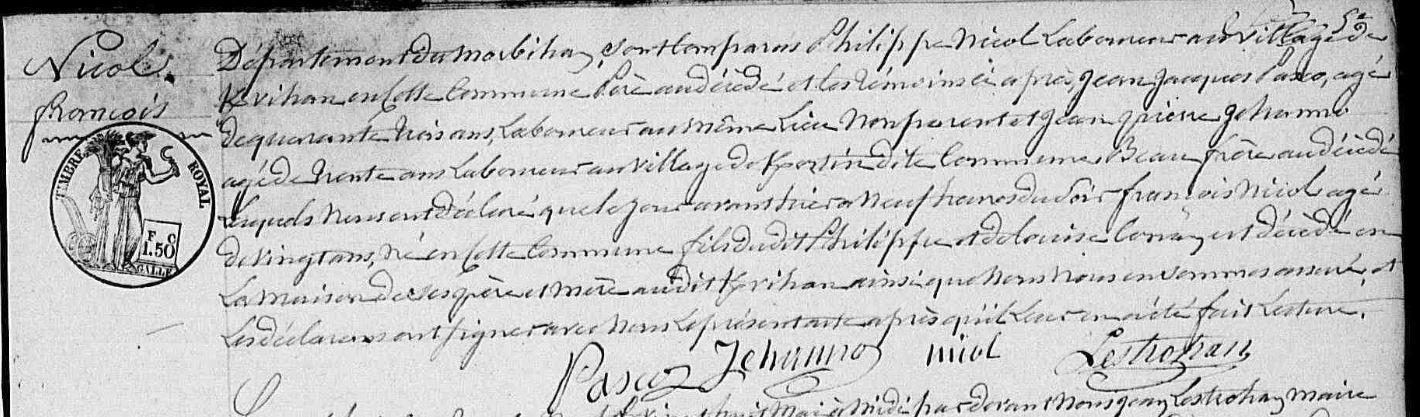 52
Nicol
françois
TIMBRE ROYAL
F C
1.50
GALLE
Département du morbihan, sont Comparus Philippe Nicol Laboureur au village de
Krihan en Cette Commune Père au décédé et les témoins ci après, Jean Jacques Pasco, agé
de quarante trois ans, Laboureur au même Lieu Non parent et Jean pierre Jehanno
agé de trente ans Laboureur au village de dite Commune, Beau frère au décédé
Lesquels Nous ont déclaré que le jour avant hier a Neuf heures du Soir françois Nicol agé
de vingt ans, Né en Cette Commune fils dudit Philippe et de Louise est décédé en
La maison de ses père et mère audit Krihan ainsi que Nous Nous en Sommes assuré, et
Les déclarans ont signer avec Nous Le présent acte après qu'il Leur en a été fait Lecture.
Pasco Jehanno nicol Lestrohan
huit Mai à Midi par devant Nous Jean Lestrohan maire